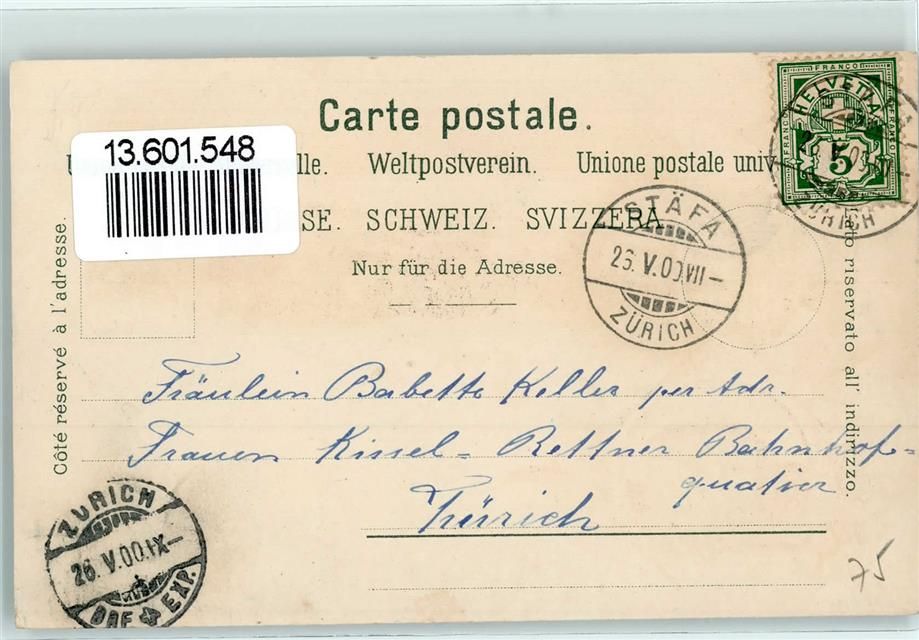 Carte postale.
13.601.548
lle. Weltpostverein. Unione postale univ
SE. SCHWEIZ. SVIZZERA
Nur für die Adresse.
Côté réservé à l'adresse.
ato riservato all' indirizzo.
FRANCO
HELVETIA
FRANCO
FRANCO
5
ZÜRICH
STÄFA
26.V.00.VII–
ZÜRICH
Fräulein Babette Keller per Adr.
Frauen Kissel-Rettner Bahnhof=
quatier
Zürich
ZÜRICH
26.V.00.IX–
BRF EXP.
75